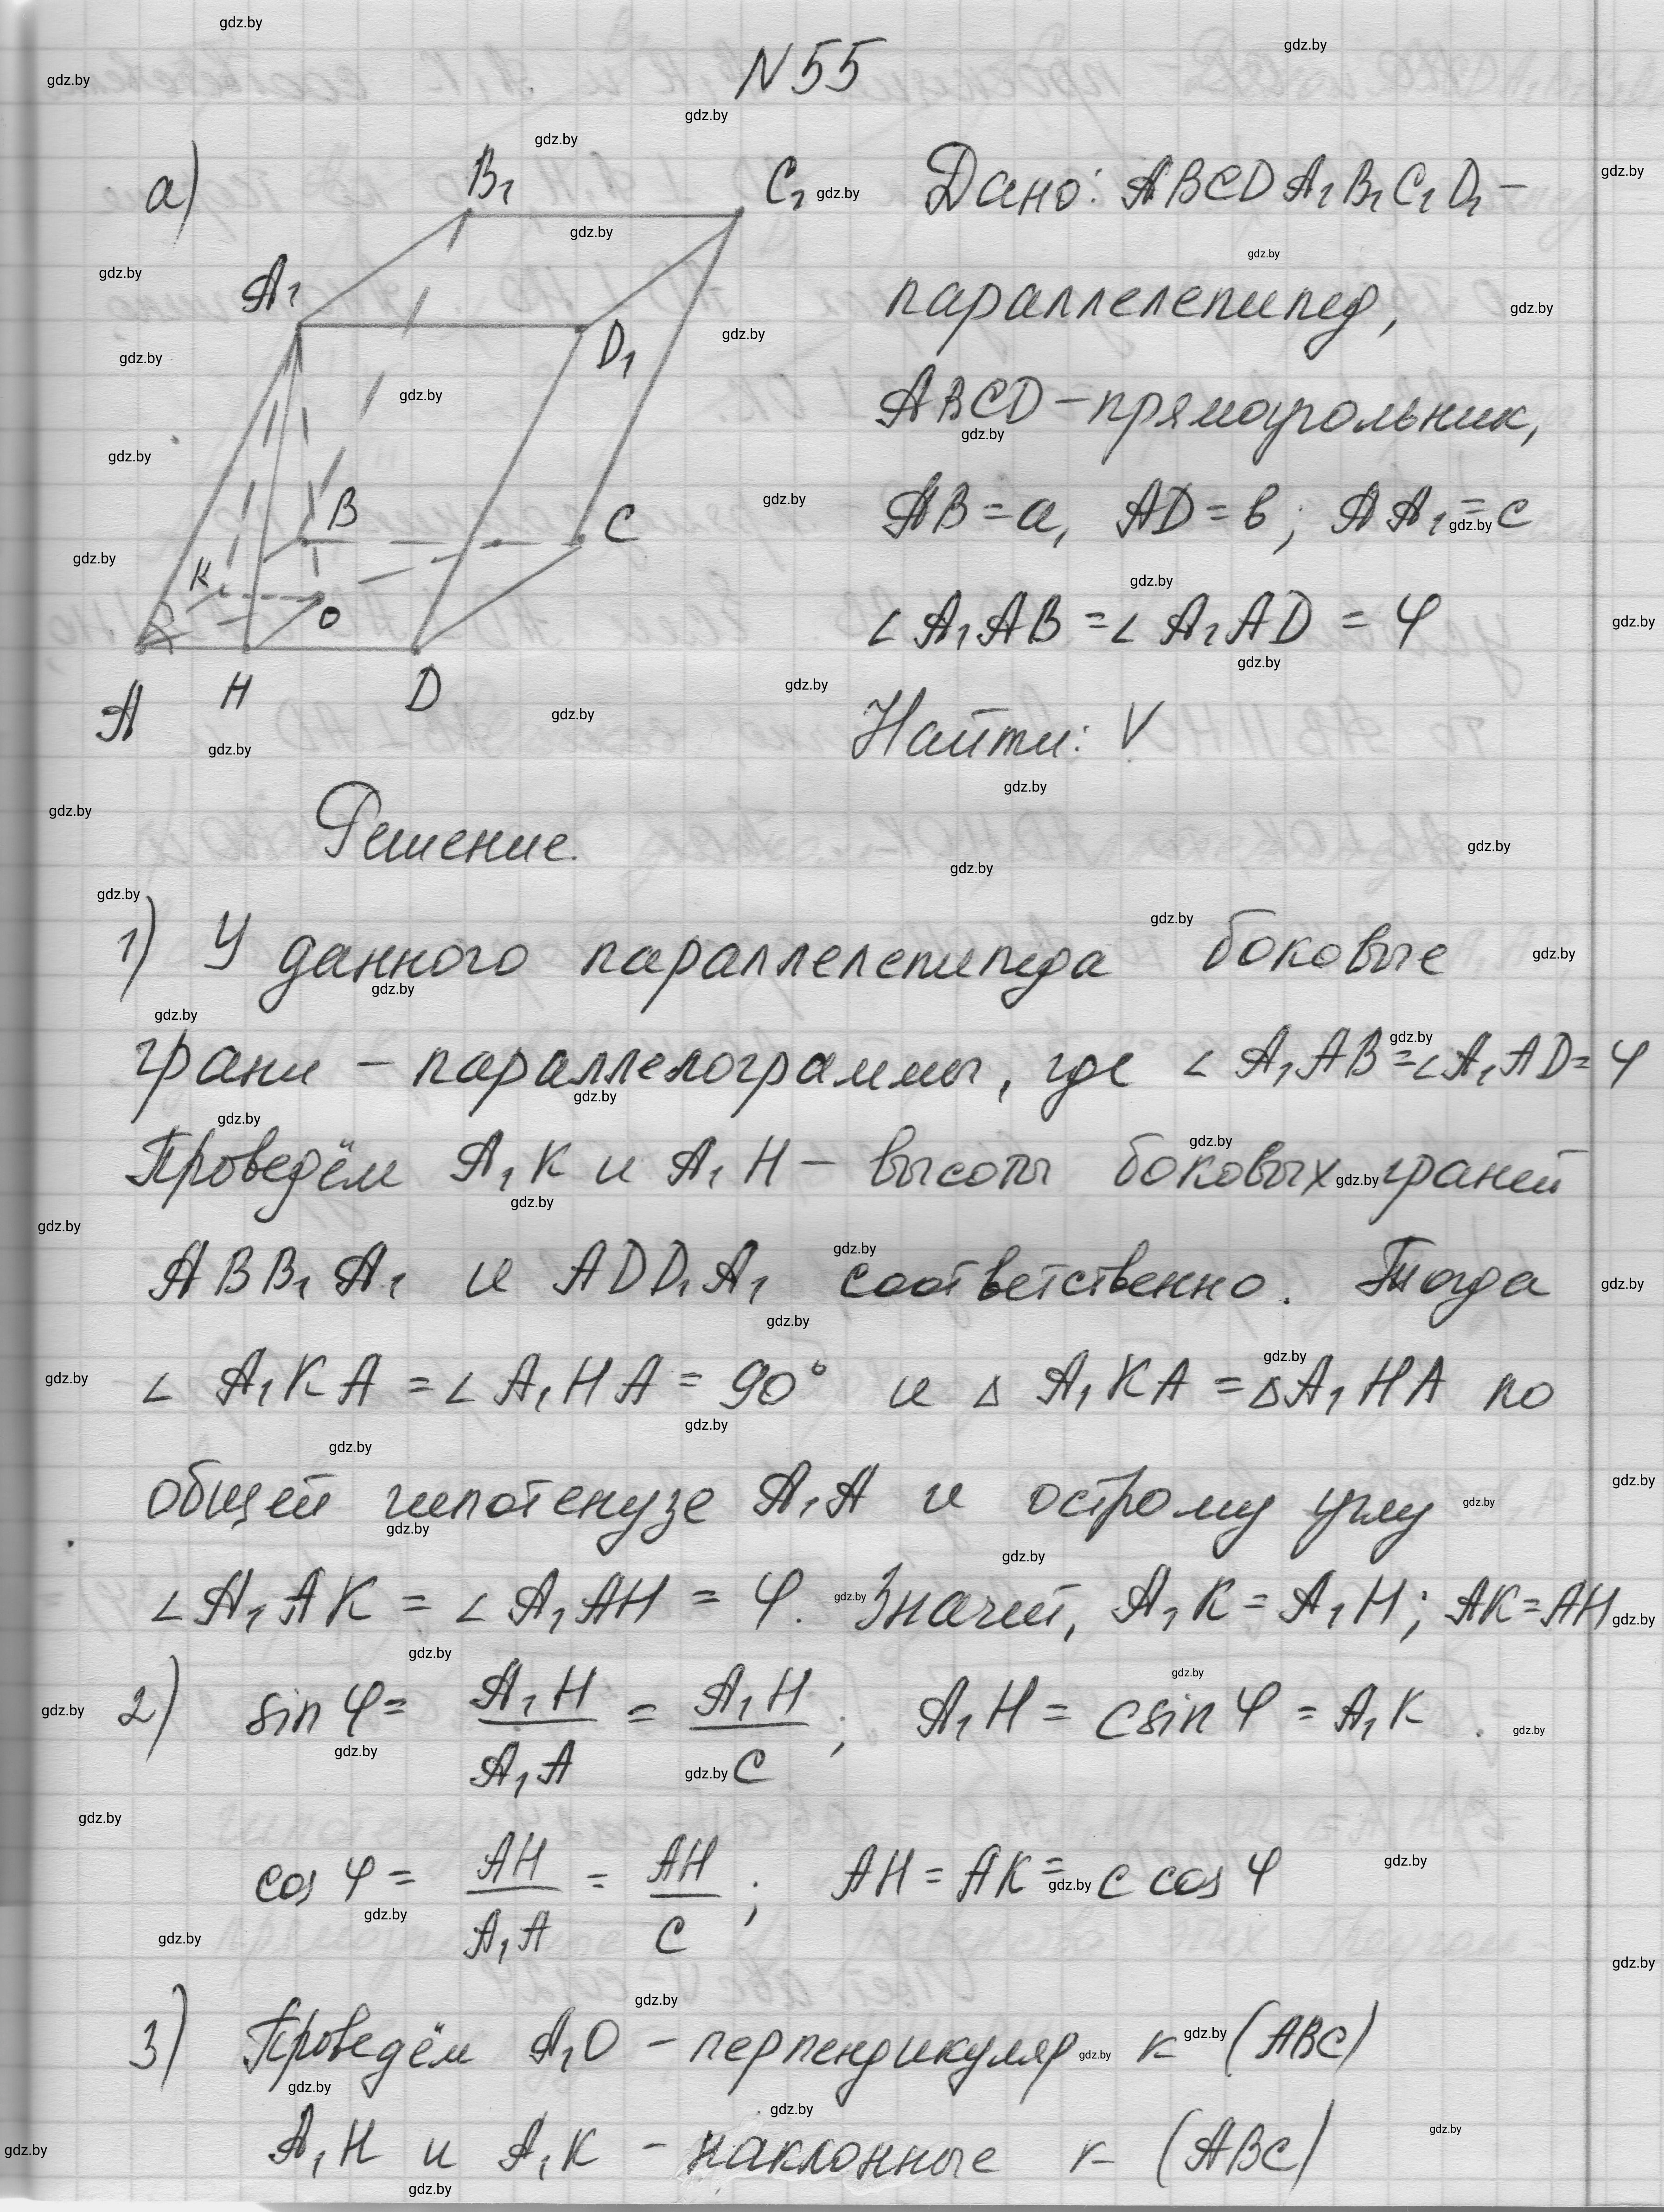 N 55
а)
B₁
C₁
A₁
D₁
B
C
K
O
A
H
D
Дано: ABCDA₁B₁C₁D₁ –
параллелепипед,
ABCD – прямоугольник,
AB = a, AD = b; AA₁ = c
∠ A₁AB = ∠ A₁AD = φ
Найти: V
Решение.
1) У данного параллелепипеда боковые
грани – параллелограммы, где ∠ A₁AB = ∠ A₁AD = φ
Проведём A₁K и A₁H – высоты боковых граней
ABB₁A₁ и ADD₁A₁ соответственно. Тогда
∠ A₁KA = ∠ A₁HA = 90° и △ A₁KA = △A₁HA по
общей гипотенузе A₁A и острому углу
∠A₁AK = ∠A₁AH = φ. Значит, A₁K = A₁H; AK = AH
2) sin φ = A₁H / A₁A = A₁H / c ; A₁H = c sin φ = A₁K.
cos φ = AH / A₁A = AH / c ; AH = AK = c cos φ
3) Проведём A₁O – перпендикуляр к (ABC)
A₁H и A₁K – наклонные к (ABC)
gdz.by